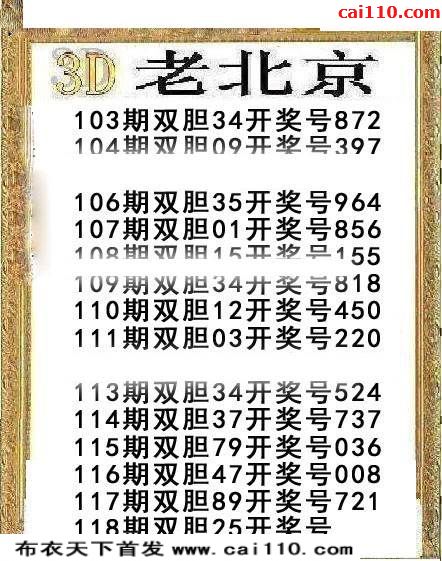 cai110.com
3D 老北京
103期双胆34开奖号872
104期双胆09开奖号397
106期双胆35开奖号964
107期双胆01开奖号856
108期双胆15开奖号155
109期双胆34开奖号818
110期双胆12开奖号450
111期双胆03开奖号220
113期双胆34开奖号524
114期双胆37开奖号737
115期双胆79开奖号036
116期双胆47开奖号008
117期双胆89开奖号721
118期双胆25开奖号
布衣天下首发 www.cai110.com